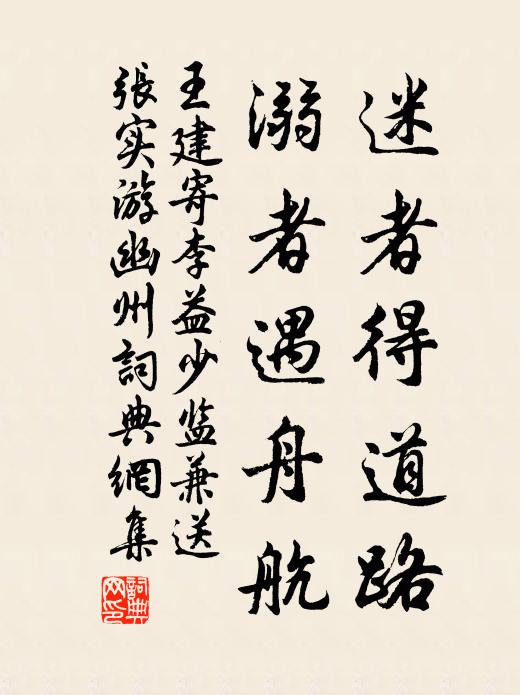 迷者得道路
溺者遇舟航
王建寄李益少监兼送
張实游幽州詞典網集
詞典网印